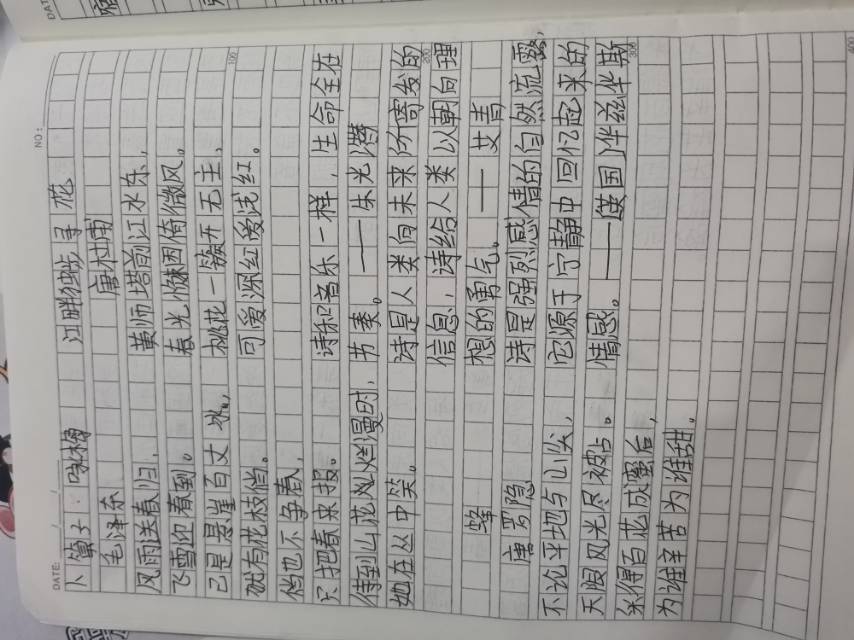 DATE:
NO:
卜算子·咏梅
毛泽东
风雨送春归,
飞雪迎春到。
已是悬崖百丈冰,
犹有花枝俏。
俏也不争春,
只把春来报。
待到山花烂漫时,
她在丛中笑。
蜂
唐 罗隐
不论平地与山尖,
无限风光尽被占。
采得百花成蜜后,
为谁辛苦为谁甜。
江畔独步寻花
唐杜甫
黄师塔前江水东,
春光懒困倚微风。
桃花一簇开无主,
可爱深红爱浅红。
诗和音乐一样,生命全在
节奏。——朱光潜
诗是人类向未来所寄发的
信息,诗给人类以朝向理
想的勇气。——艾青
诗是强烈感情的自然流露,
它源于宁静中回忆起来的
情感。——英国]华兹华斯
100
200
300
400